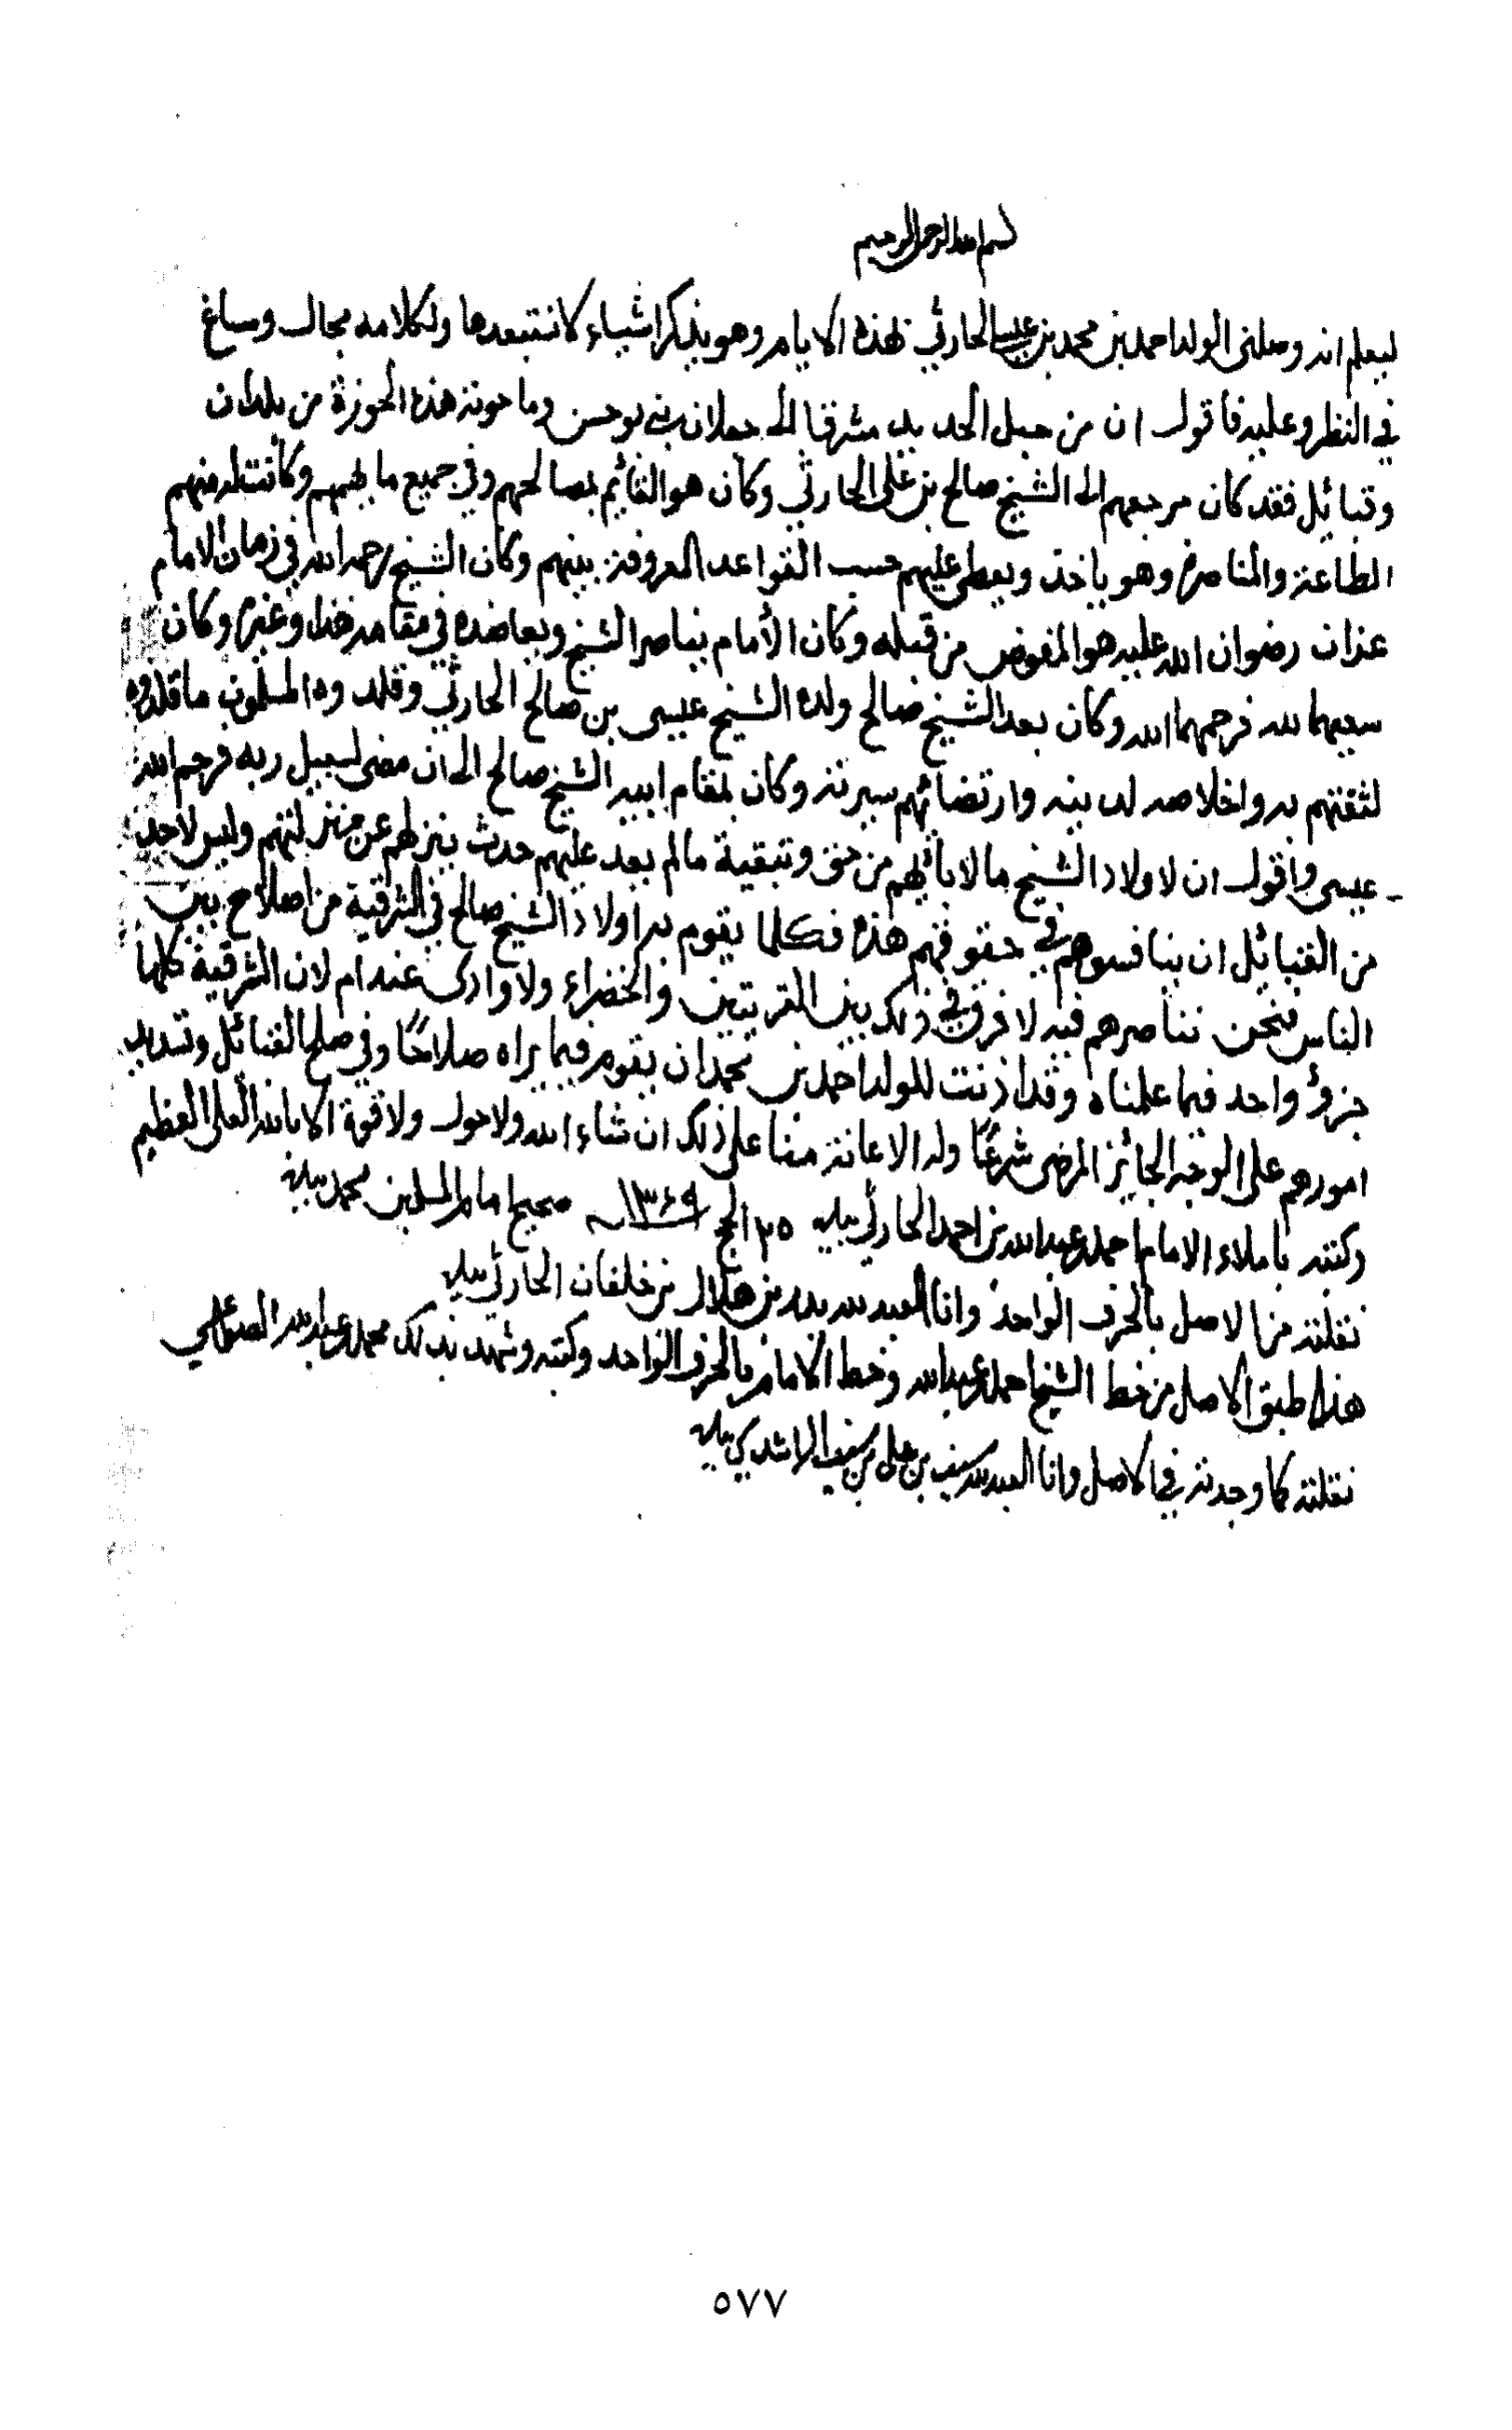 بسم الله الرحمن الرحيم
ليعلم انه وصلني الولد احمد بن محمد بن عيسى الحارثي لهذه الايام وهو يذكر اشياء لا نستبعدها ولكلامه مجال ومساغ
في النظر وعليه فاقول ان من جبل الحديد مشرقا الى جعلان بني بو حسن وما حوته هذه الحوزة من بلدان
وقبائل فقد كان مرجعهم الى الشيخ صالح بن علي الحارثي وكان هو القائم بمصالحهم وفي جميع ما يهمهم وكانت له منهم
الطاعة والمناصرة وهو ياخذ ويعطي عليهم حسب القواعد المعروفة بينهم وكان الشيخ رحمه الله في زمان الامام
عزان رضوان الله عليه هو المفوض من قبله وكان الأمام يناصر الشيخ ويعاضده في مقامه هذا وغيره وكان
سعيهما لله فرحمهما الله وكان بعد الشيخ صالح ولده الشيخ عيسى بن صالح الحارثي وقلدوه المسلمون ما قلدوه
لثقتهم به ولخلاصه لدينه وارتضائهم سيرته وكان بمقام ابيه الشيخ صالح الى ان مضى لسبيل ربه فرحم الله
عيسى واقول ان لاولاد الشيخ ما لابائهم من حق وتبقية مالم يعد عليهم حدث ينزلهم عن منزلتهم وليس لاحد
من القبائل ان ينافسوهم في حقوقهم هذه فكلما يقوم به اولاد الشيخ صالح في الشرقية من اصلاح بين
الناس فنحن نناصرهم فيه لا فرق في ذلك بين القريتين والخضراء ولا وادي عندام لان الشرقية كلها
جزؤ واحد فيما علمناه وقد اذنت للولد احمد بن محمد ان يقوم فيما يراه صلاحًا وفي صلح القبائل وتسديد
امورهم على الوجه الجائز المرضي شرعًا وله الاعانة منا على ذلك ان شاء الله ولا حول ولا قوة الا بالله العلي العظيم
وكتبه باملاء الامام احمد بن عبدالله بن احمد الحارثي بيده ٢٥ الحج ١٣٦٩ صحيح امام المسلمين محمد بيده
نقلته من الاصل بالحرف الواحد وانا العبد لله بدر بن هلال بن خلفان الحارثي بيده
هذا طبق الاصل من خط الشيخ احمد بن عبدالله وخط الامام بالحرف الواحد وكتبه وشهد بذلك محمد بن عبدالله
نقلته كما وجدته في الاصل وانا العبد لله سيف بن علي بن سيف الراشدي بيده
٥٧٧